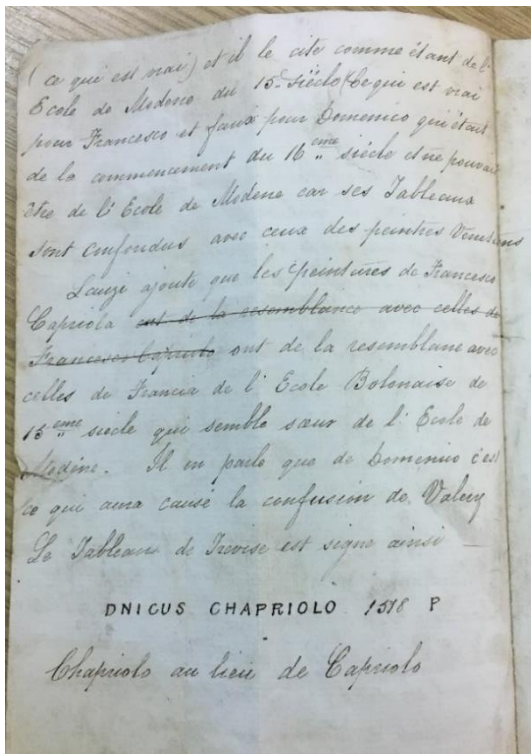 ( ce qui est vrai) et il le cite comme étant de l'
Ecole de Modene du 15e siècle (Ce qui est vrai
pour Francesco et faux pour Domenico qui était
de la commencement du 16ème siècle et ne pouvait
être de l'Ecole de Modene car ses Tableaux
sont confondus avec ceux des peintres Venetiens
Lanzi ajoute que les peintures de Francesco
Capriola ont de la resemblance avec celles de
Francesco Capriolo ont de la resemblane avec
celles de Francia de l'Ecole Bolonaise de
15ème siècle qui semble sœur de l'Ecole de
Modène. Il en parle que de Domenico c'est
ce qui aura causé la confusion de Valery
Le Tableau de Trevise est signe ainsi —
DNICUS CHAPRIOLO 1518 P
Chapriolo au lieu de Capriolo